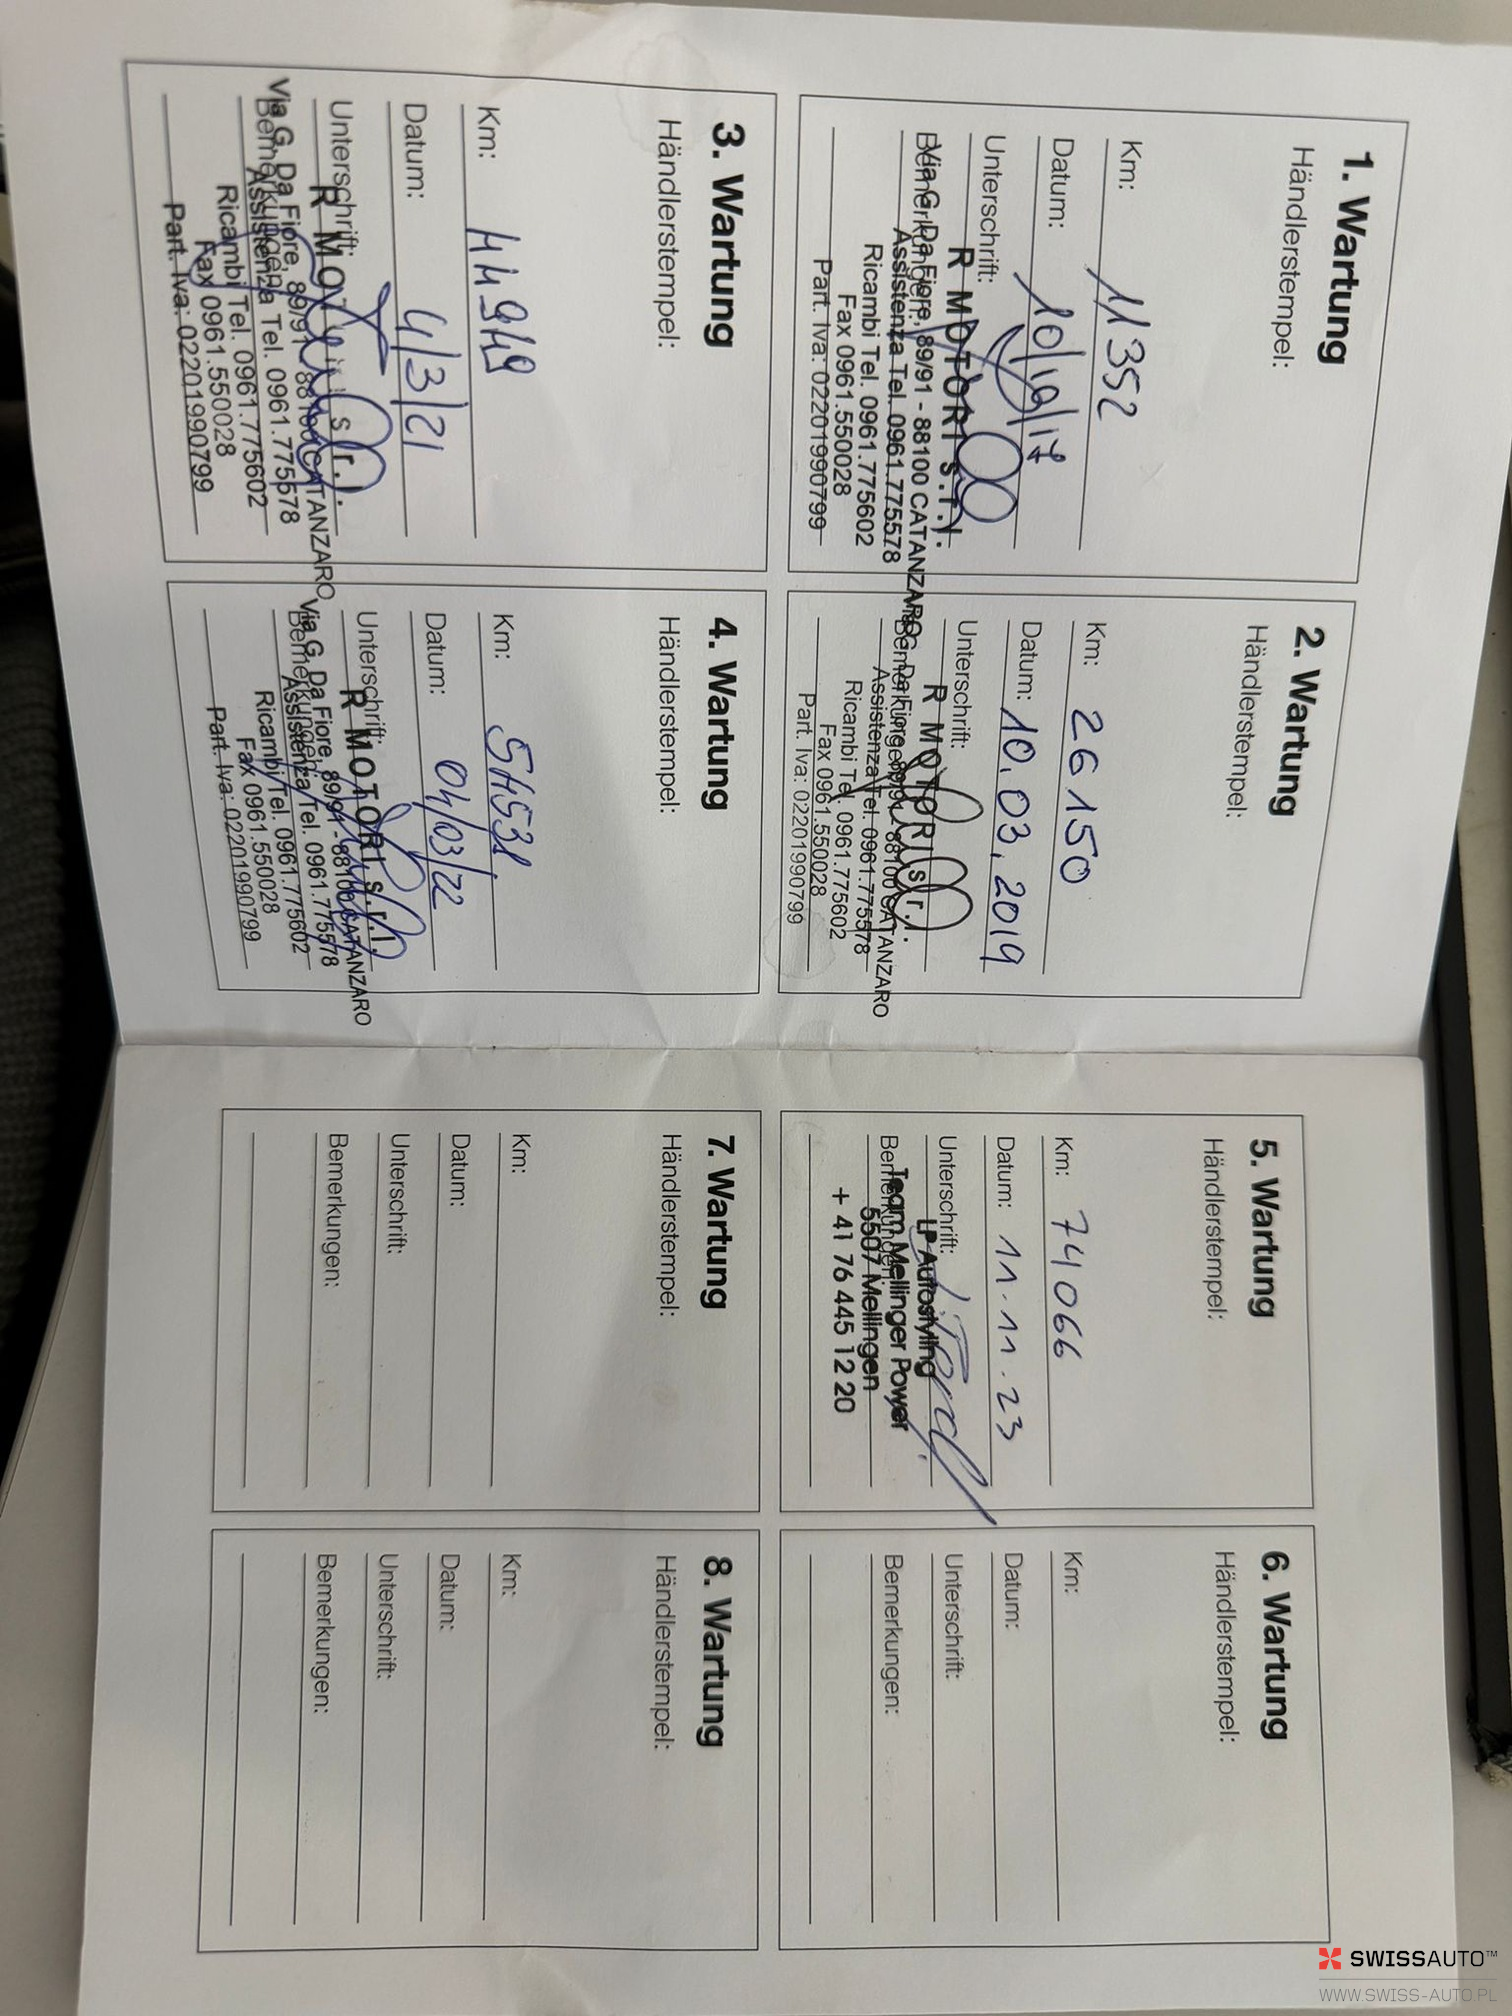 1. Wartung
Händlerstempel:
Km: 11352
Datum: 10/10/17
Unterschrift:
R MOTORI s.r.l.
Bemerkungen:
Via G. Da Fiore, 89/91 - 88100 CATANZARO
Assistenza Tel. 0961.775578
Ricambi Tel. 0961.775602
Fax 0961.550028
Part. Iva: 02201990799
2. Wartung
Händlerstempel:
Km: 26150
Datum: 10.03.2019
Unterschrift:
R MOTORI s.r.l.
Bemerkungen:
Via G. Da Fiore, 89/91 - 88100 CATANZARO
Assistenza Tel. 0961.775578
Ricambi Tel. 0961.775602
Fax 0961.550028
Part. Iva: 02201990799
3. Wartung
Händlerstempel:
Km: 44949
Datum: 4/3/21
Unterschrift:
R MOTORI s.r.l.
Bemerkungen:
Via G. Da Fiore, 89/91 - 88100 CATANZARO
Assistenza Tel. 0961.775578
Ricambi Tel. 0961.775602
Fax 0961.550028
Part. Iva: 02201990799
4. Wartung
Händlerstempel:
Km:
Datum: 04/03/22
Unterschrift:
R MOTORI s.r.l.
Bemerkungen:
Via G. Da Fiore, 89/91 - 88100 CATANZARO
Assistenza Tel. 0961.775578
Ricambi Tel. 0961.775602
Fax 0961.550028
Part. Iva: 02201990799
5. Wartung
Händlerstempel:
Km: 74066
Datum: 11.11.23
Unterschrift:
LP Autostyling
Bemerkungen:
Team Mellinger Power
5507 Mellingen
+ 41 76 445 12 20
6. Wartung
Händlerstempel:
Km:
Datum:
Unterschrift:
Bemerkungen:
7. Wartung
Händlerstempel:
Km:
Datum:
Unterschrift:
Bemerkungen:
8. Wartung
Händlerstempel:
Km:
Datum:
Unterschrift:
Bemerkungen:
SWISSAUTO™
WWW.SWISS-AUTO.PL